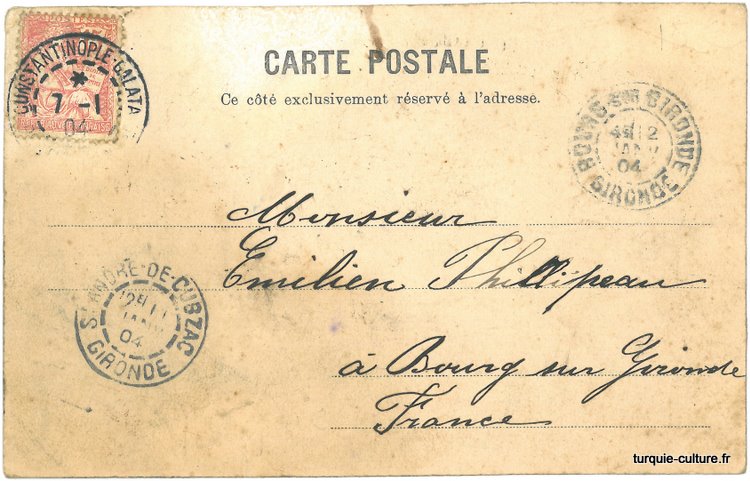 POSTES
CONSTANTINOPLE-GALATA
7-1
04
CARTE POSTALE
Ce côté exclusivement réservé à l'adresse.
BOURG SUR GIRONDE
12
JANV
04
GIRONDE
Monsieur
Emilien Phillipeau
à Bourg sur Gironde
France
ST ANDRÉ-DE-CUBZAC
11
JANV
04
GIRONDE
turquie-culture.fr